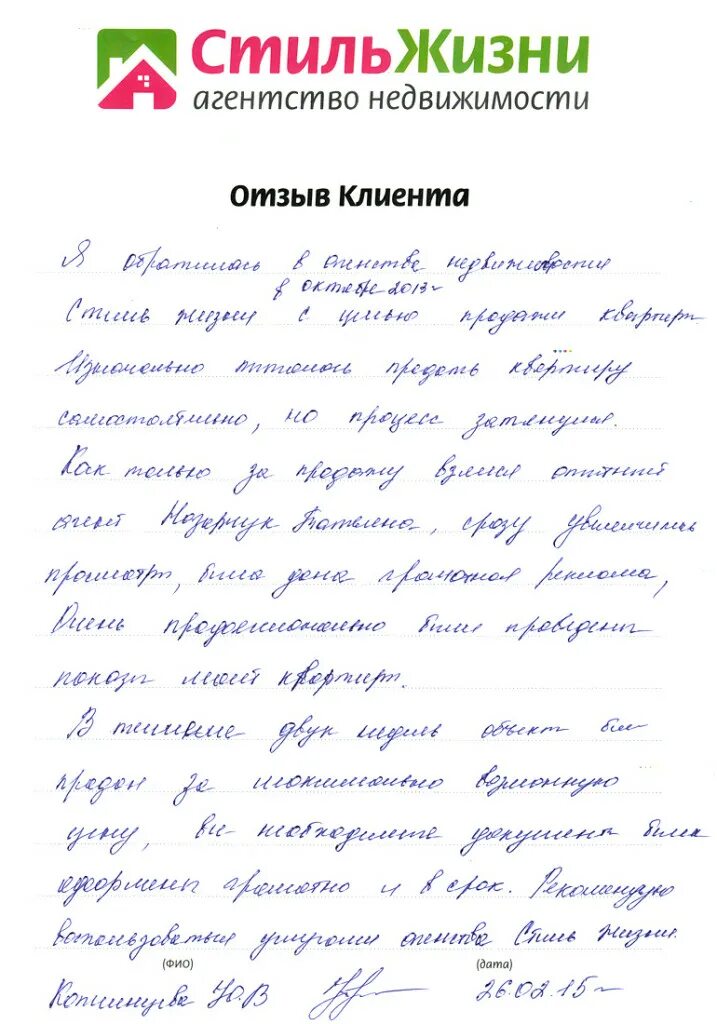 Стиль Жизни
агентство недвижимости
Отзыв Клиента
Я обратилась в агенства недвижимости
в октябре 2013г
Стиль жизни с целью продажи квартиры.
Изначально пыталась продать квартиру
самостоятельно, но процесс затянулся.
Как только за продажу взялся опытный
агент Назарчук, сразу увеличились
просмотры, была дана грамотная реклама,
Очень профессионально были проведены
показы моей квартиры.
В течение двух недель объект был
продан за максимально возможную
цену, все необходимые документы были
оформлены грамотно и в срок. Рекомендую
воспользоваться услугами агенства Стиль жизни.
(ФИО) (дата)
Ю.В 26.02.15г